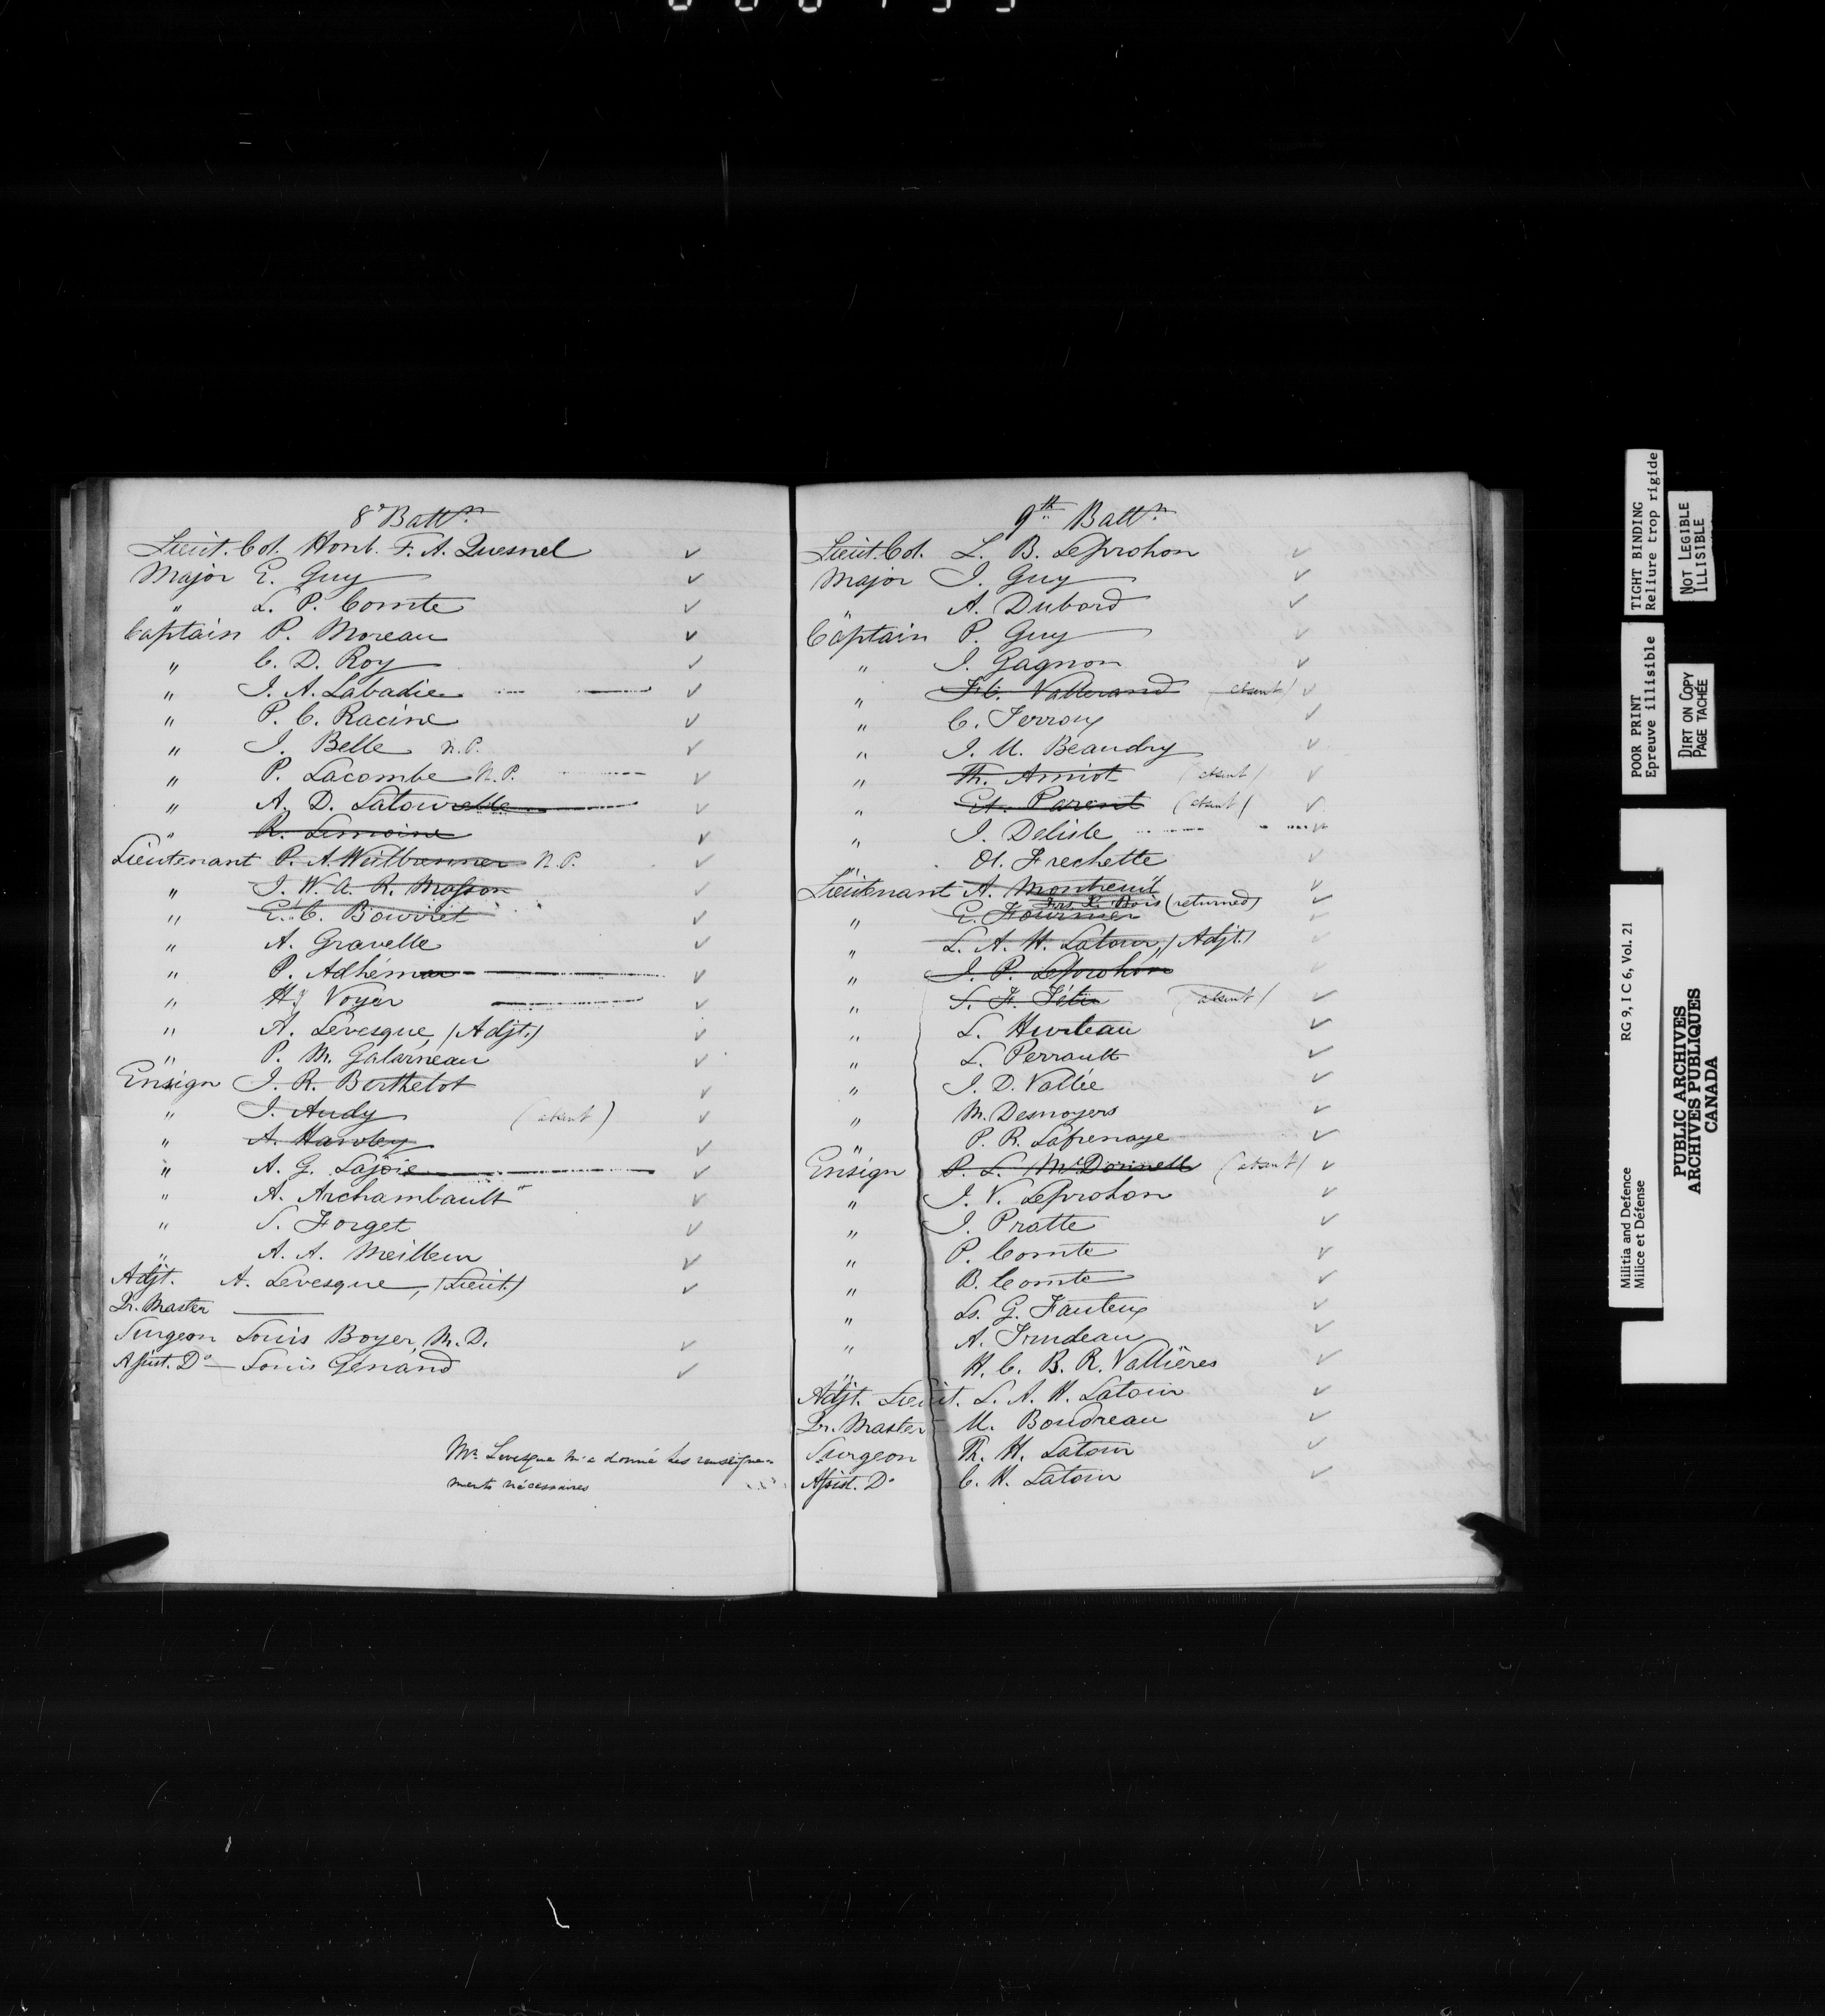 8th Battn.
Lieut. Col. Honl. F. A. Quesnel
Major E. Guy
" L. P. Comte
Captain P. Moreau
" C. D. Roy
" J. A. Labadie
" P. C. Racine
" J. Belle N.P.
" P. Lacombe N.P.
" A. D. Latourelle
" R. Lemoine
Lieutenant P. A. Weilbrenner N.P.
" J. W. A. R. Masson
" E. C. Bouvret
" A. Gravelle
" P. Adhémar
" Hy Voyer
" A. Levesque, (Adjt.)
" P. M. Galarneau
Ensign J. R. Berthelot
" J. Audy (absent)
" A. Hawley
" A. G. Lajoie
" A. Archambault
" S. Forget
" A. A. Meilleur
Adjt. A. Levesque, (Lieut)
Qr. Master
Surgeon Louis Boyer, M.D.
Assist. Do — Louis Génand
Mr. Levesque m'a donné les renseigne-
ments nécessaires
9th Battn.
Lieut. Col. L. B. Leprohon
Major J. Guy
" A. Dubord
Captain P. Guy
" J. Gagnon
" Vallerand (absent)
" C. Ferroux
" J. U. Beaudry
" Th. Amiot (absent)
" Et. Parent (absent)
" J. Delisle
" Ol. Frechette
Lieutenant A. Montreuil
Bois (returned)
" E. Fournier
" L. A. H. Latour, (Adjt.)
" J. P. Leprohon
" S. F. Têtu (absent)
" L. Hurteau
" L. Perrault
" J. D. Vallée
" M. Desnoyers
" P. R. Lafrenaye
Ensign P. L. McDonnell (absent)
" J. V. Leprohon
" J. Pratte
" P. Comte
" B. Comte
" Ls. G. Fauteux
" A. Trudeau
" H. C. B. R. Vallières
Adjt. Lieut. L. A. H. Latour
Qr. Master U. Boudreau
Surgeon Th. H. Latour
Assist. Do C. H. Latour
TIGHT BINDING
Reliure trop rigide
NOT LEGIBLE
ILLISIBLE
POOR PRINT
Epreuve illisible
DIRT ON COPY
PAGE TACHÉE
Militia and Defence RG 9, I C 6, Vol. 21
Milice et Défense
PUBLIC ARCHIVES
ARCHIVES PUBLIQUES
CANADA